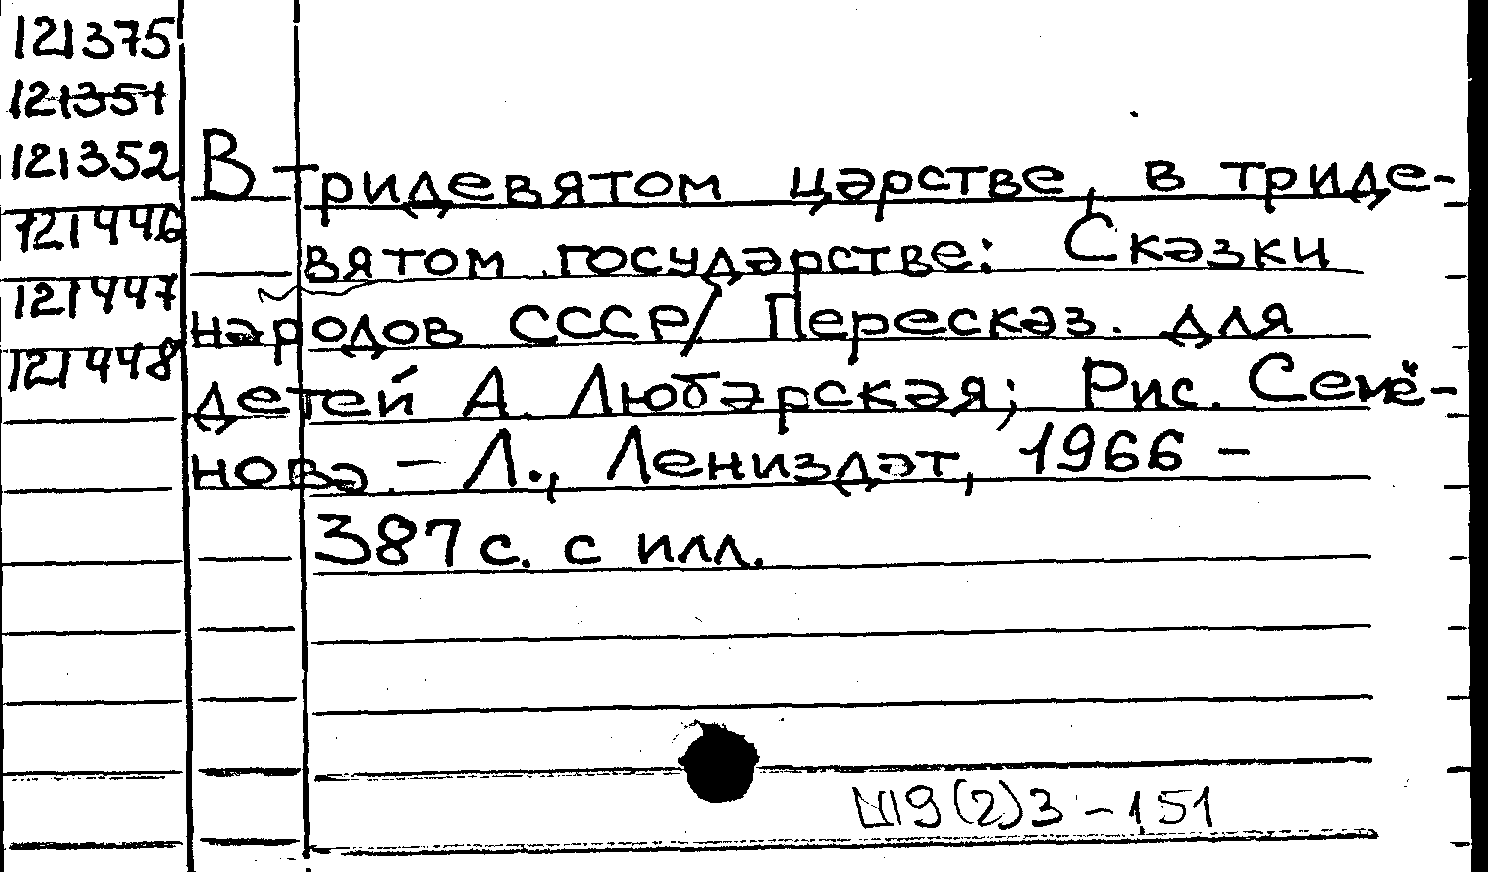 121375
121351
121352
121446
121447
121448
В тридевятом царстве, в триде-
вятом государстве: Сказки
народов СССР / Пересказ. для
детей А. Любарская; Рис. Семё-
нова. – Л., Лениздат, 1966 –
387 с. с илл.
Ш9(2)3 – 151